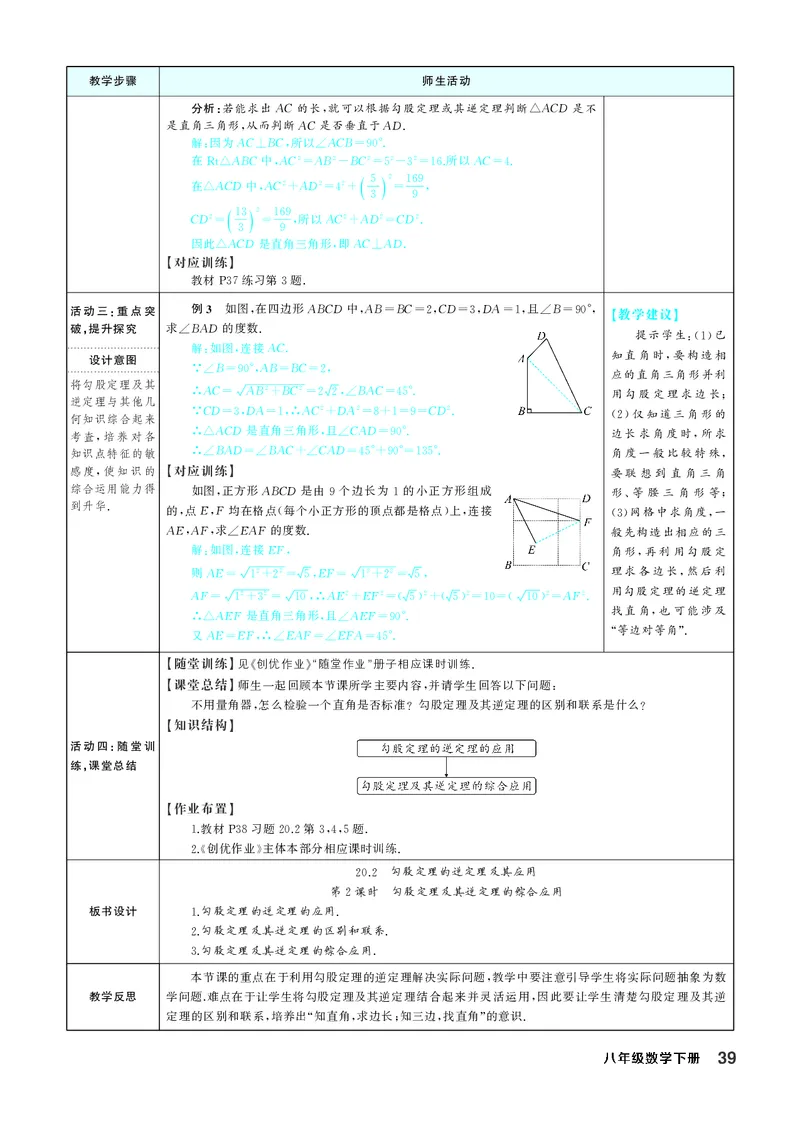 教学步骤
师生活动
分析:若能求出 AC 的长,就可以根据勾股定理或其逆定理判断△ACD 是不
是直角三角形,从而判断 AC 是否垂直于 AD.
解:因为 AC⊥BC,所以∠ACB=90°.
在 Rt△ABC 中,AC²=AB²-BC²=5²-3²=16.所以 AC=4.
在△ACD 中,AC²+AD²=4²+(5/3)²=169/9,
CD²=(13/3)²=169/9,所以 AC²+AD²=CD².
因此△ACD 是直角三角形,即 AC⊥AD.
【对应训练】
教材 P37 练习第 3 题.
活动三:重点突
破,提升探究
设计意图
将勾股定理及其
逆定理与其他几
何知识综合起来
考查,培养对各
知识点特征的敏
感度,使知识的
综合运用能力得
到升华.
例 3 如图,在四边形 ABCD 中,AB=BC=2,CD=3,DA=1,且∠B=90°,
求∠BAD 的度数.
解:如图,连接 AC.
∵∠B=90°,AB=BC=2,
∴AC=√(AB²+BC²)=2√2,∠BAC=45°.
∵CD=3,DA=1,∴AC²+DA²=8+1=9=CD².
∴△ACD 是直角三角形,且∠CAD=90°.
∴∠BAD=∠BAC+∠CAD=45°+90°=135°.
D
A
B
C
【对应训练】
如图,正方形 ABCD 是由 9 个边长为 1 的小正方形组成
的,点 E,F 均在格点(每个小正方形的顶点都是格点)上,连接
AE,AF,求∠EAF 的度数.
解:如图,连接 EF,
则 AE=√(1²+2²)=√5,EF=√(1²+2²)=√5,
AF=√(1²+3²)=√10,∴AE²+EF²=(√5)²+(√5)²=10=(√10)²=AF².
∴△AEF 是直角三角形,且∠AEF=90°.
又 AE=EF,∴∠EAF=∠EFA=45°.
A
D
F
E
B
C
【教学建议】
提示学生:(1)已
知直角时,要构造相
应的直角三角形并利
用勾股定理求边长;
(2)仅知道三角形的
边长求角度时,所求
角度一般比较特殊,
要联想到直角三角
形、等腰三角形等;
(3)网格中求角度,一
般先构造出相应的三
角形,再利用勾股定
理求各边长,然后利
用勾股定理的逆定理
找直角,也可能涉及
“等边对等角”.
活动四:随堂训
练,课堂总结
【随堂训练】见《创优作业》“随堂作业”册子相应课时训练.
【课堂总结】师生一起回顾本节课所学主要内容,并请学生回答以下问题:
不用量角器,怎么检验一个直角是否标准? 勾股定理及其逆定理的区别和联系是什么?
【知识结构】
勾股定理的逆定理的应用
勾股定理及其逆定理的综合应用
【作业布置】
1.教材 P38 习题 20.2 第 3,4,5 题.
2.《创优作业》主体本部分相应课时训练.
板书设计
20.2 勾股定理的逆定理及其应用
第 2 课时 勾股定理及其逆定理的综合应用
1.勾股定理的逆定理的应用.
2.勾股定理及其逆定理的区别和联系.
3.勾股定理及其逆定理的综合应用.
教学反思
本节课的重点在于利用勾股定理的逆定理解决实际问题,教学中要注意引导学生将实际问题抽象为数
学问题.难点在于让学生将勾股定理及其逆定理结合起来并灵活运用,因此要让学生清楚勾股定理及其逆
定理的区别和联系,培养出“知直角,求边长;知三边,找直角”的意识.
八年级数学下册 39